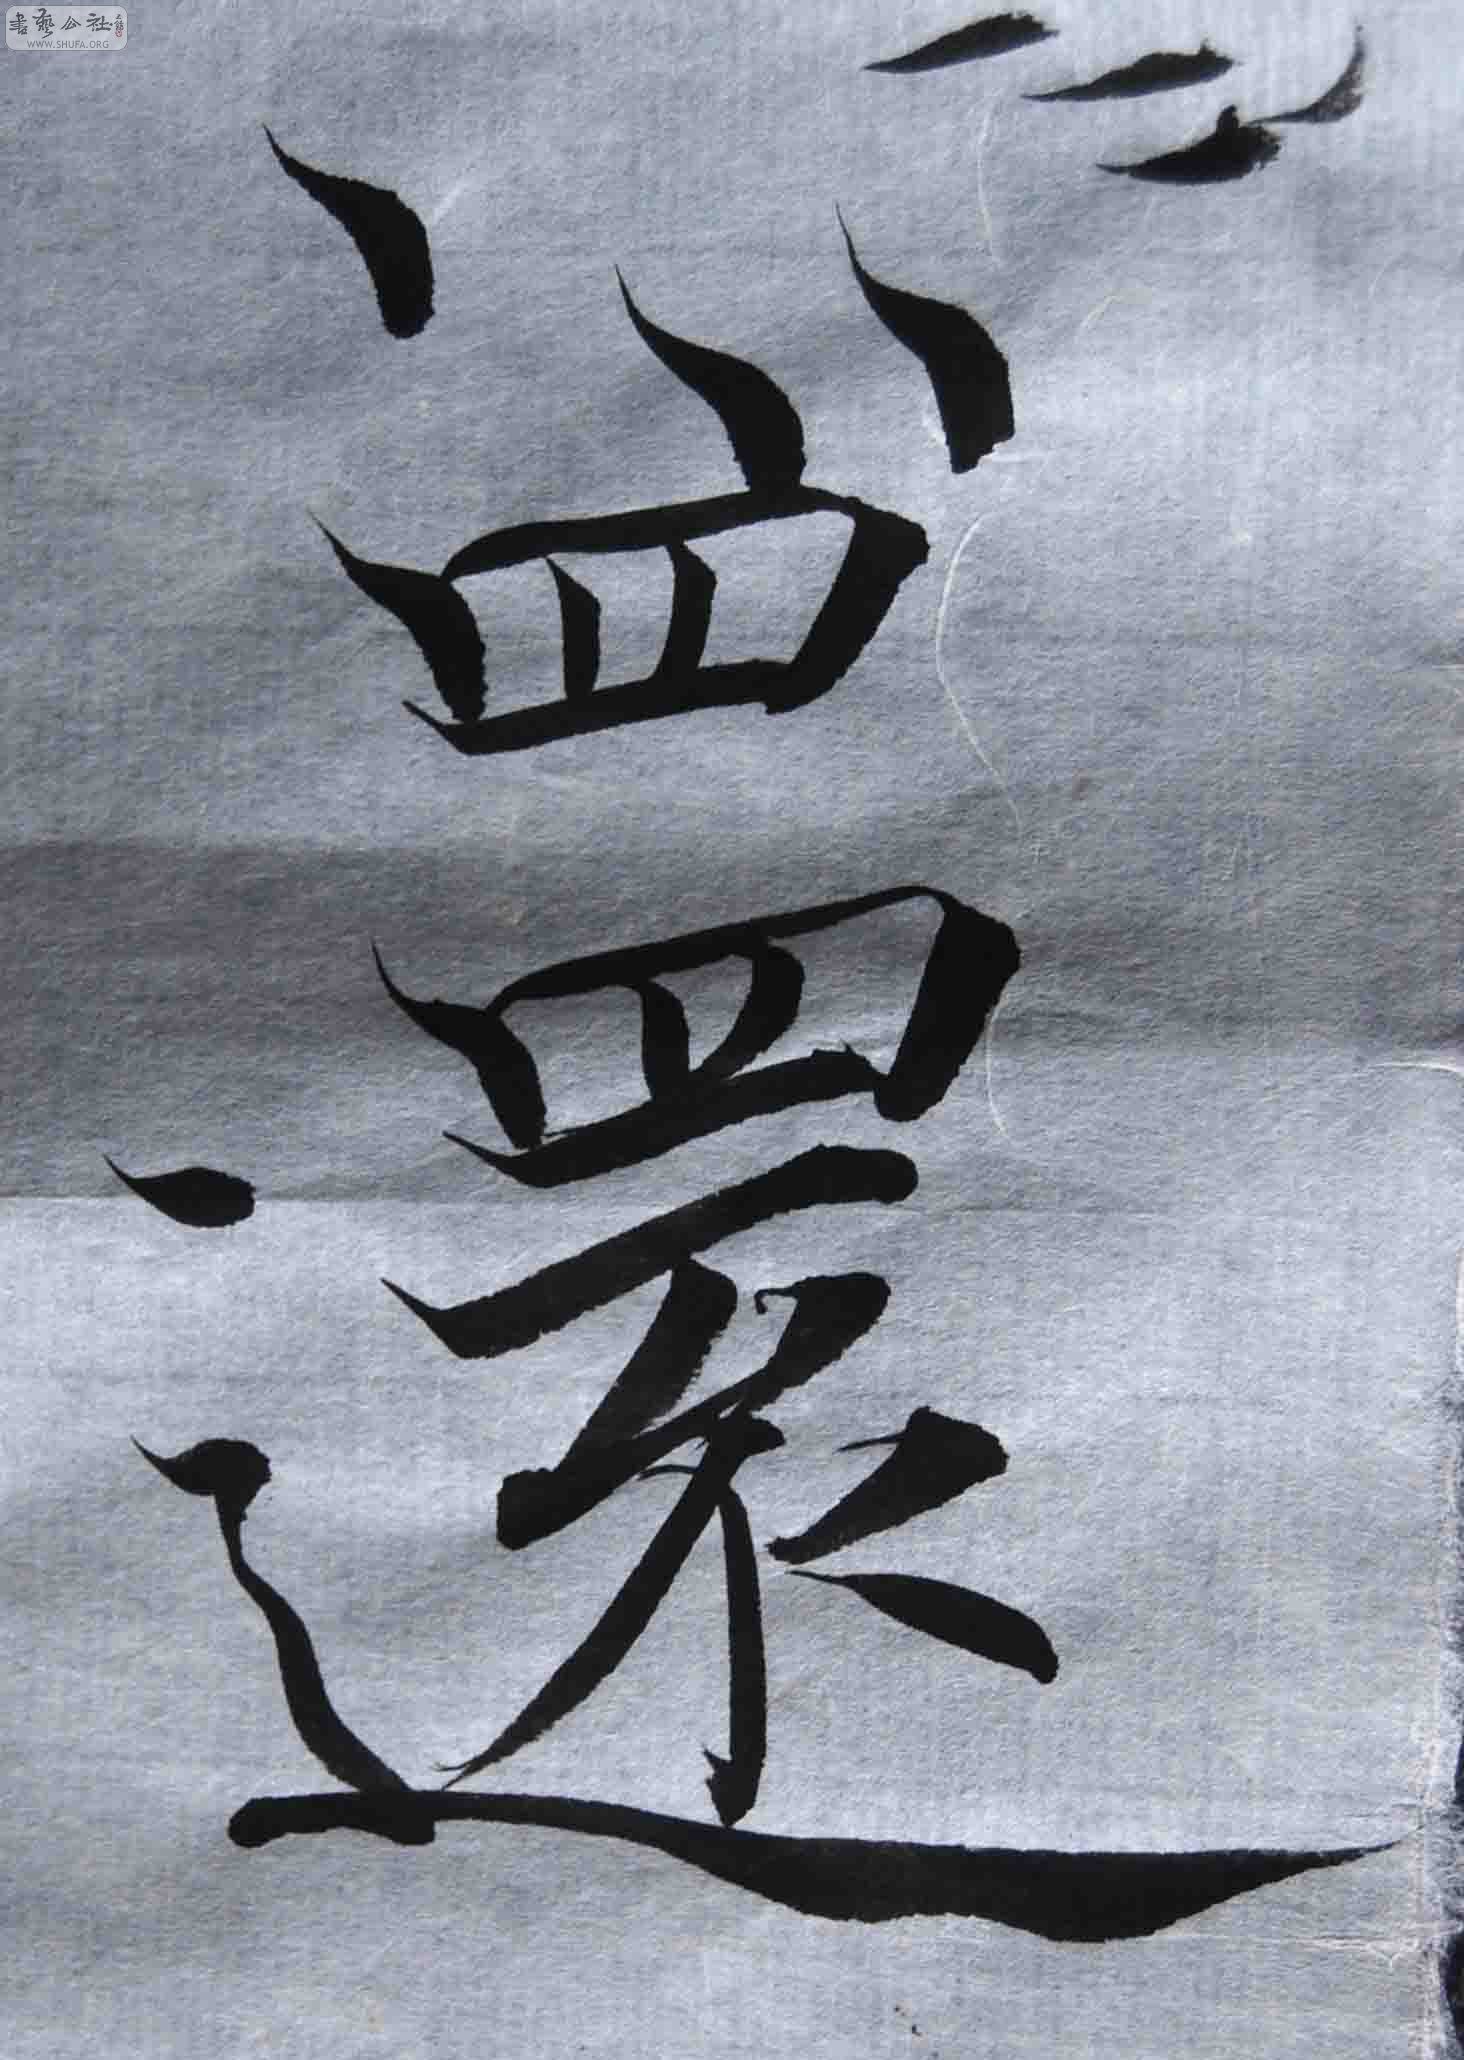 書藝公社
WWW.SHUFA.ORG
還